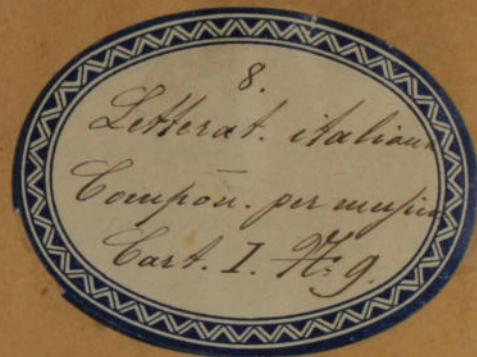 8.
Letterat. italiana
Compon. per musica
Cart. I. N: 9.